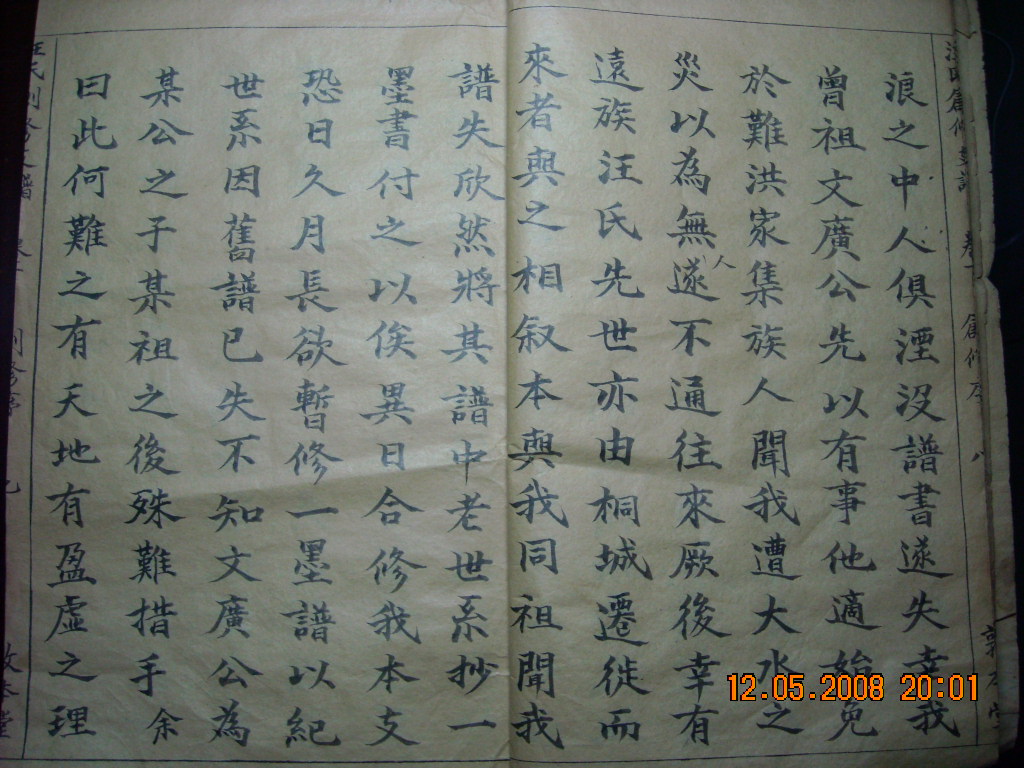 浪之中人俱湮沒譜書遂失幸我
曾祖文廣公先以有事他適始免
於難洪家集族人聞我遭大水之
災以為無人遂不通往來厥後幸有
遠族汪氏先世亦由桐城遷徙而
來者與之相叙本與我同祖聞我
譜失欣然將其譜中老世系抄一
墨書付之以俟異日合修我本支
恐日久月長欲暫修一墨譜以紀
世系因舊譜已失不知文廣公為
某公之子某祖之後殊難措手余
曰此何難之有天地有盈虛之理
12.05.2008 20:01